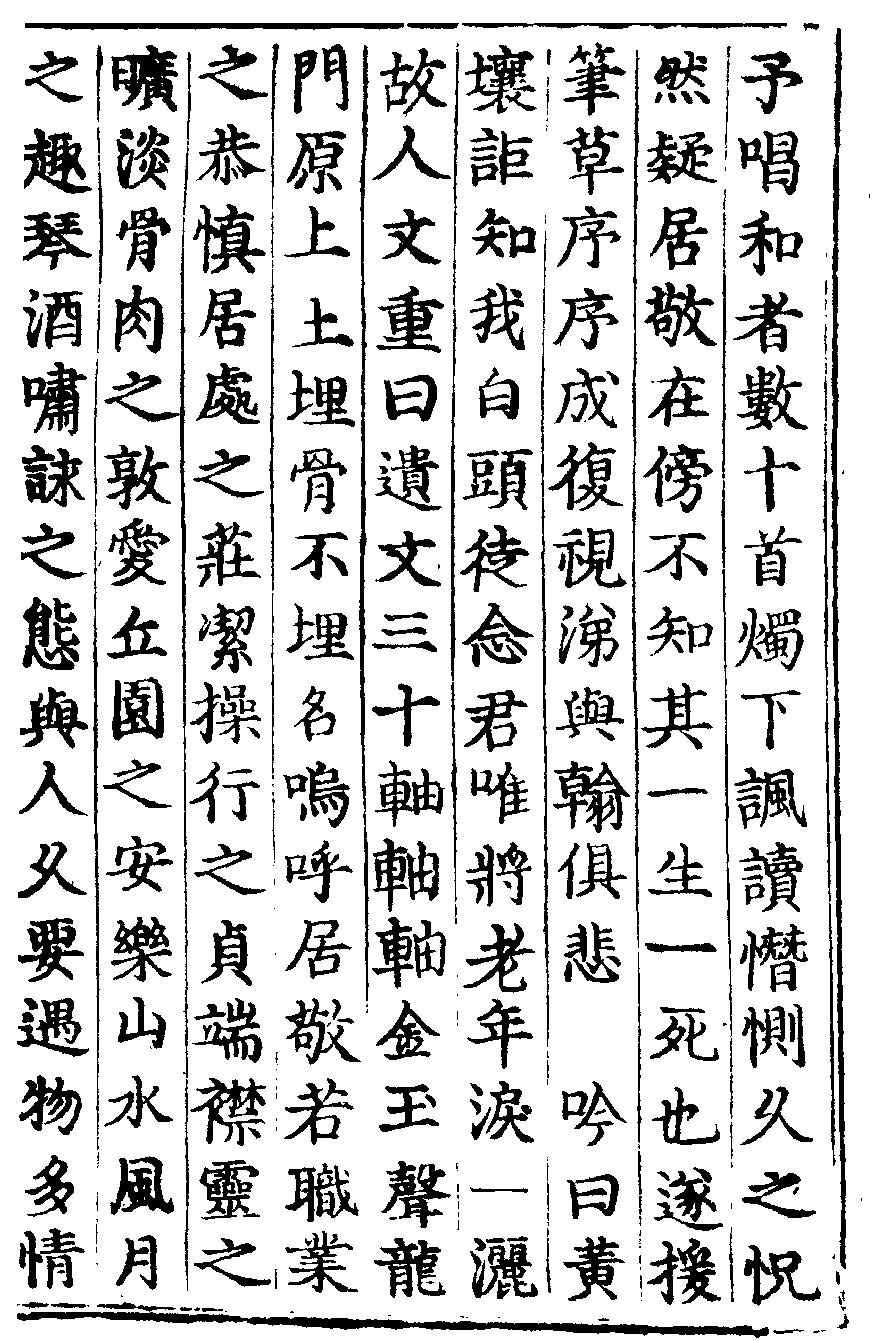 予唱和者數十首燭下諷讀憯惻久之怳
然疑居敬在傍不知其一生一死也遂援
筆草序序成復視涕與翰俱悲　吟曰黃
壤詎知我白頭徒念君唯將老年淚一灑
故人文重曰遺文三十軸軸軸金玉聲龍
門原上土埋骨不埋名嗚呼居敬若職業
之恭慎居處之莊潔操行之貞端襟靈之
曠淡骨肉之敦愛丘園之安樂山水風月
之趣琴酒嘯詠之態與人久要遇物多情